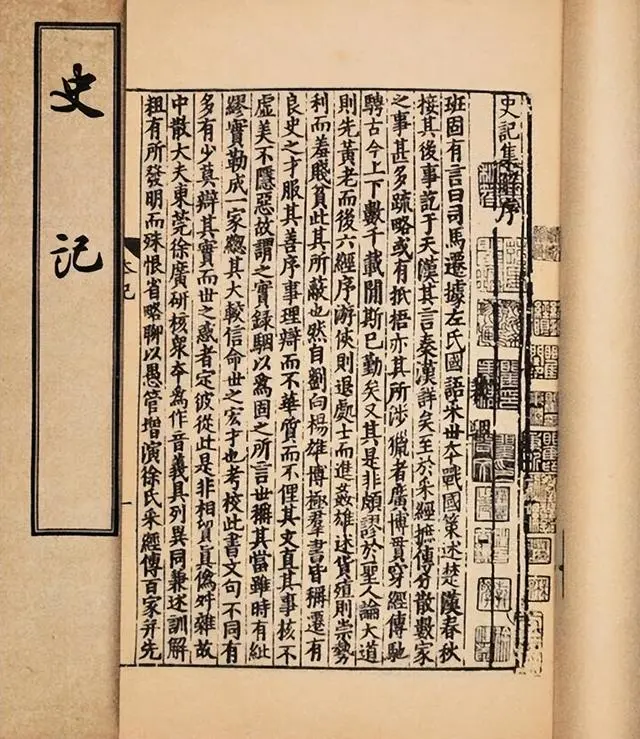 史記集解序
班固有言曰司馬遷據左氏國語采世夲戰國策述楚漢春秋
接其後事訖于天漢其言秦漢詳矣至於采經摭傳分散數家
之事甚多疏略或有抵梧亦其所涉獵者廣博貫穿經傳馳
騁古今上下數千載閒斯已勤矣又其是非頗謬於聖人論大道
則先黃老而後六經序游俠則退處士而進姦雄述貨殖則崇勢
利而羞賤貧此其所蔽也然自劉向楊雄博極羣書皆稱遷有
良史之才服其善序事理辯而不華質而不俚其文直其事核不
虛美不隱惡故謂之實録駰以爲固之所言世稱其當雖時有紕
繆實勒成一家緫其大較信命世之宏才也考校此書文句不同有
多有少莫辯其實而世之惑者定彼從此是非相貿真僞舛雜故
中散大夫東莞徐廣研核衆夲爲作音義具列異同兼述訓解
粗有所發明而殊恨省略聊以愚管增演徐氏采經傳百家并先
史記